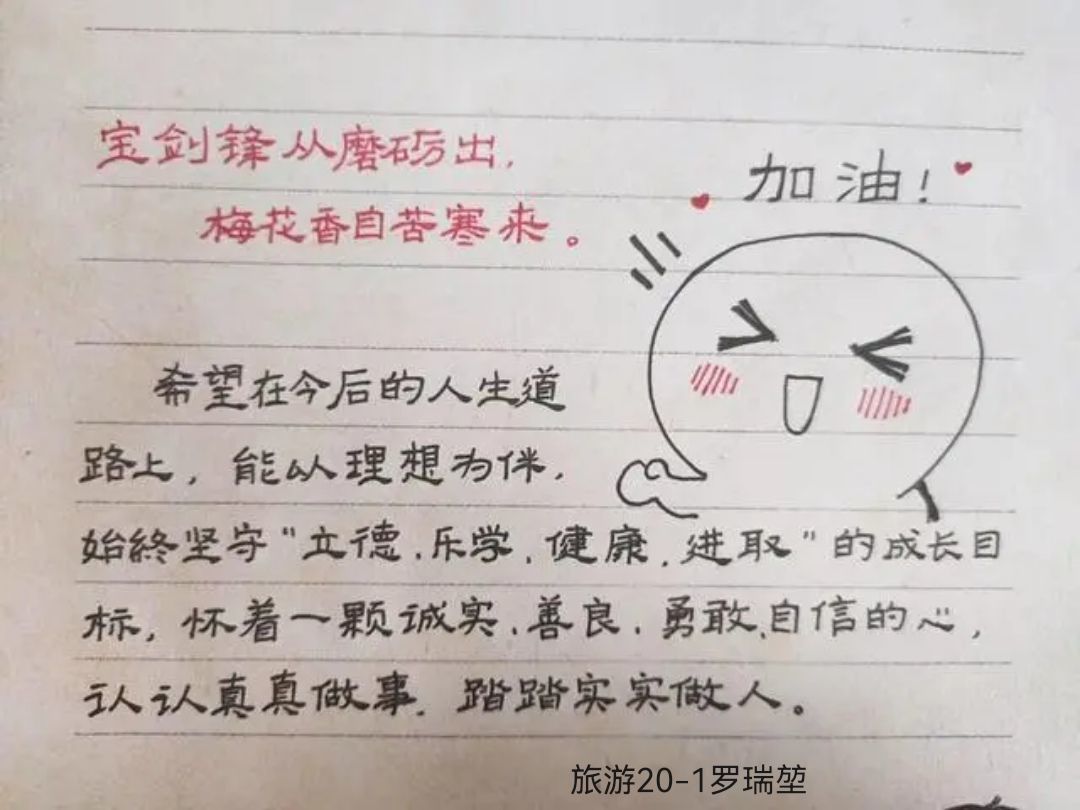 宝剑锋从磨砺出,
梅花香自苦寒来。
加油!
希望在今后的人生道
路上,能以理想为伴,
始终坚守“立德、乐学、健康、进取”的成长目
标,怀着一颗诚实、善良、勇敢、自信的心,
认认真真做事,踏踏实实做人。
旅游20-1罗瑞堃